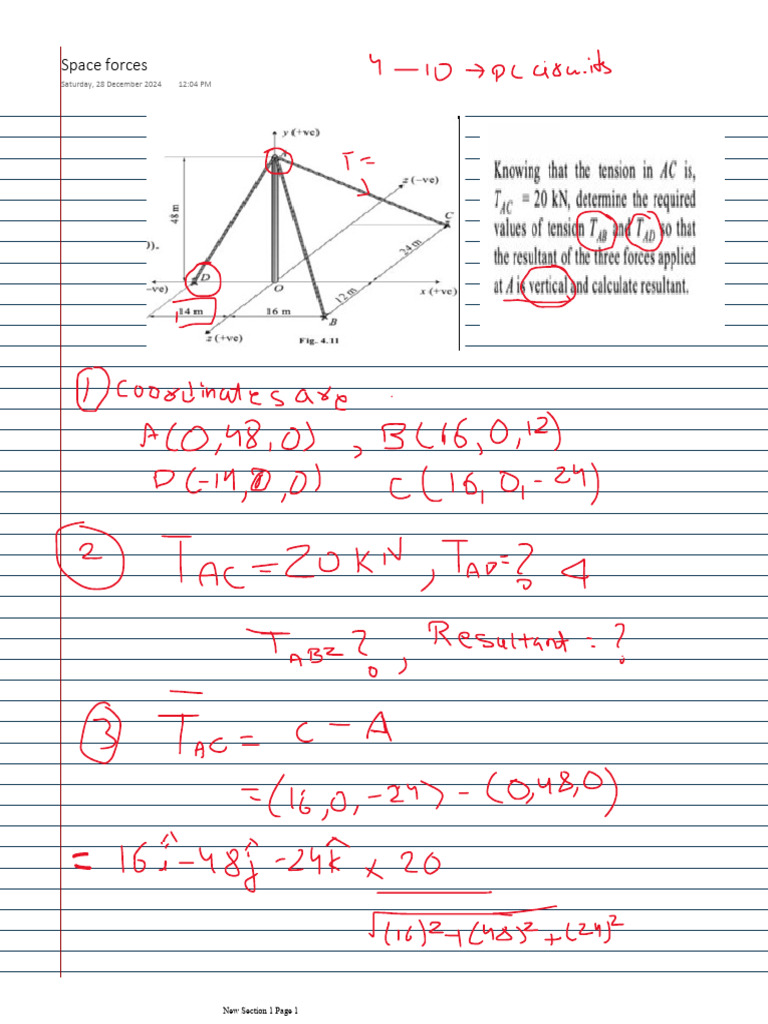 Space forces
Saturday, 28 December 2024 12:04 PM
4 — 10 → DC circuits
y (+ve)
A
T =
z (−ve)
48 m
C
24 m
)),
D
−ve)
O
x (+ve)
12 m
14 m
16 m
B
z (+ve)
Fig. 4.11
Knowing that the tension in AC is,
T_AC = 20 kN, determine the required
values of tension T_AB and T_AD so that
the resultant of the three forces applied
at A is vertical and calculate resultant.
① Coordinates are .
A(0,48,0) , B(16,0,12)
D(-14,0,0) C(16,0,-24)
② T_AC = 20 kN, T_AD = ?
T_AB = ? , Resultant = ?
③ T̅_AC = C - A
= (16,0,-24) - (0,48,0)
= 16î - 48ĵ - 24k̂ × 20
√(16)² + (48)² + (24)²
New Section 1 Page 1